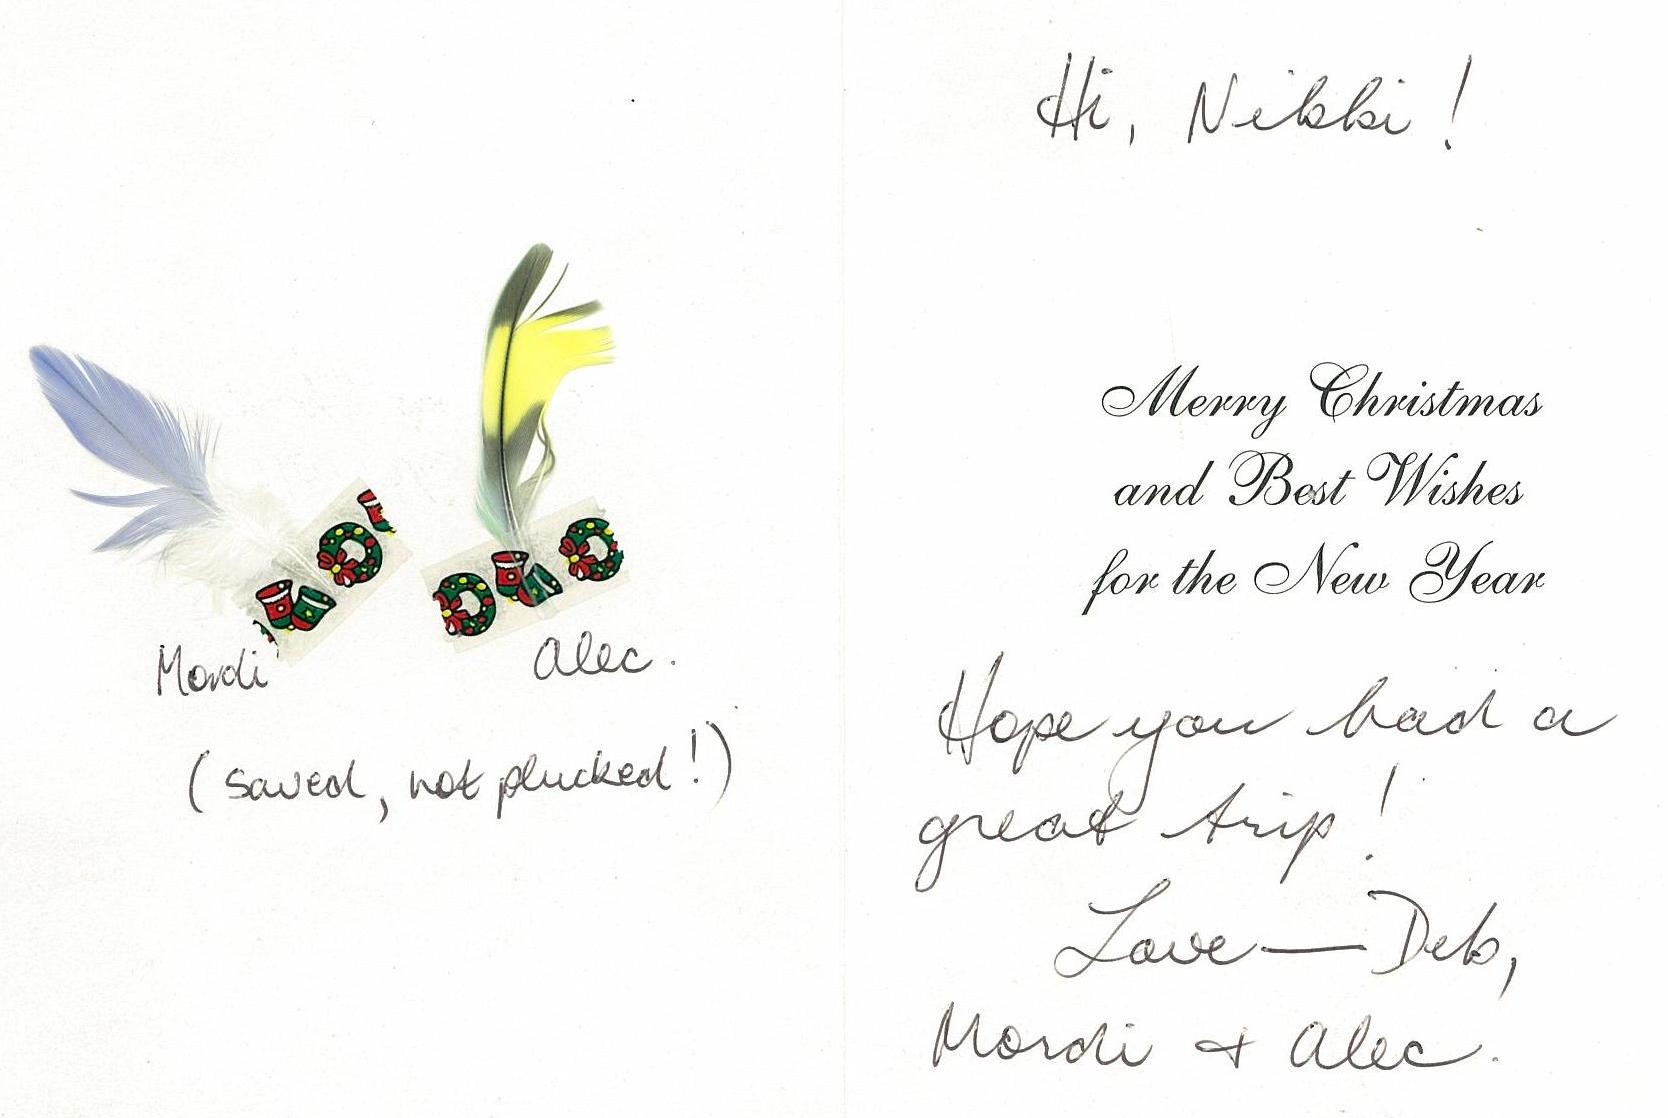 Mordi
Alec.
(saved, not plucked!)
Hi, Nikki!
Merry Christmas
and Best Wishes
for the New Year
Hope you had a
great trip!
Love — Deb,
Mordi + Alec.